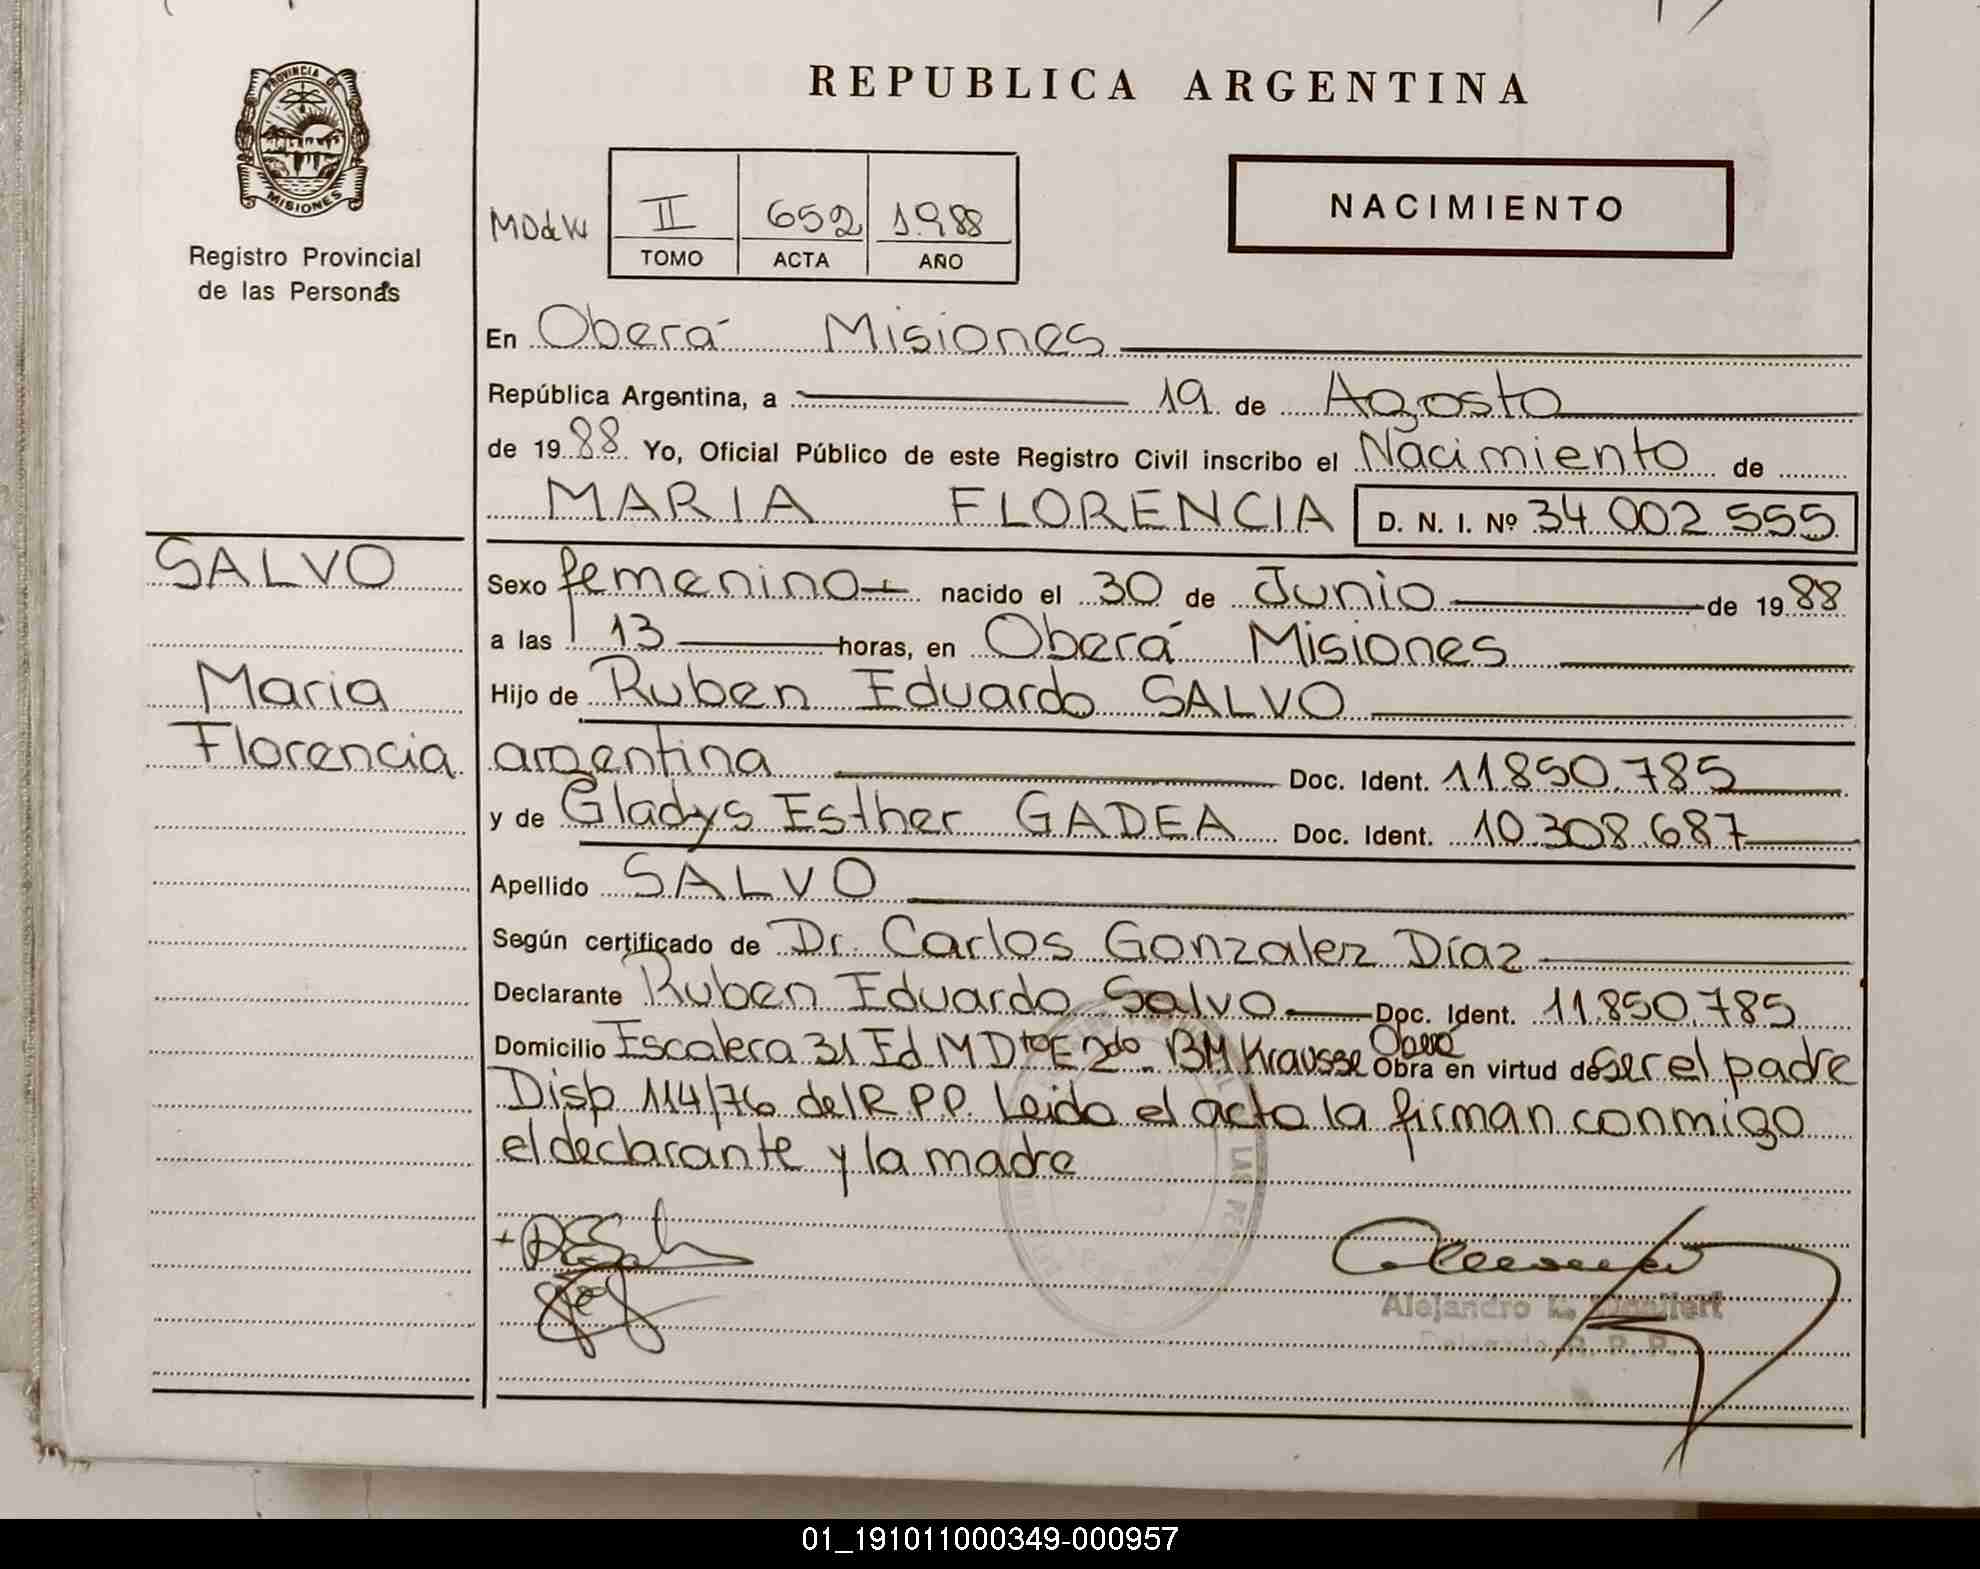 REPUBLICA ARGENTINA
PROVINCIA DE
MISIONES
Registro Provincial
de las Personas
II 652 1.988
TOMO ACTA AÑO
NACIMIENTO
En Oberá Misiones
República Argentina, a 19 de Agosto
de 1988 Yo, Oficial Público de este Registro Civil inscribo el Nacimiento de
MARIA FLORENCIA D. N. I. Nº 34 002 555
SALVO
Maria
Florencia
Sexo femenino nacido el 30 de Junio de 1988
a las 13 horas, en Oberá Misiones
Hijo de Ruben Eduardo SALVO
argentina Doc. Ident. 11.850.785
y de Gladys Esther GADEA Doc. Ident. 10.308.687
Apellido SALVO
Según certificado de Dr. Carlos Gonzalez Díaz
Declarante Ruben Eduardo Salvo Doc. Ident. 11.850.785
Domicilio Escalera 31 Ed M Dto E 2do BM Krausse Oberá Obra en virtud de ser el padre
Disp 114/76 del R.P.P. Leido el acto la firman conmigo
el declarante y la madre
Alejandro
Delegado R. P. P.
01_191011000349-000957